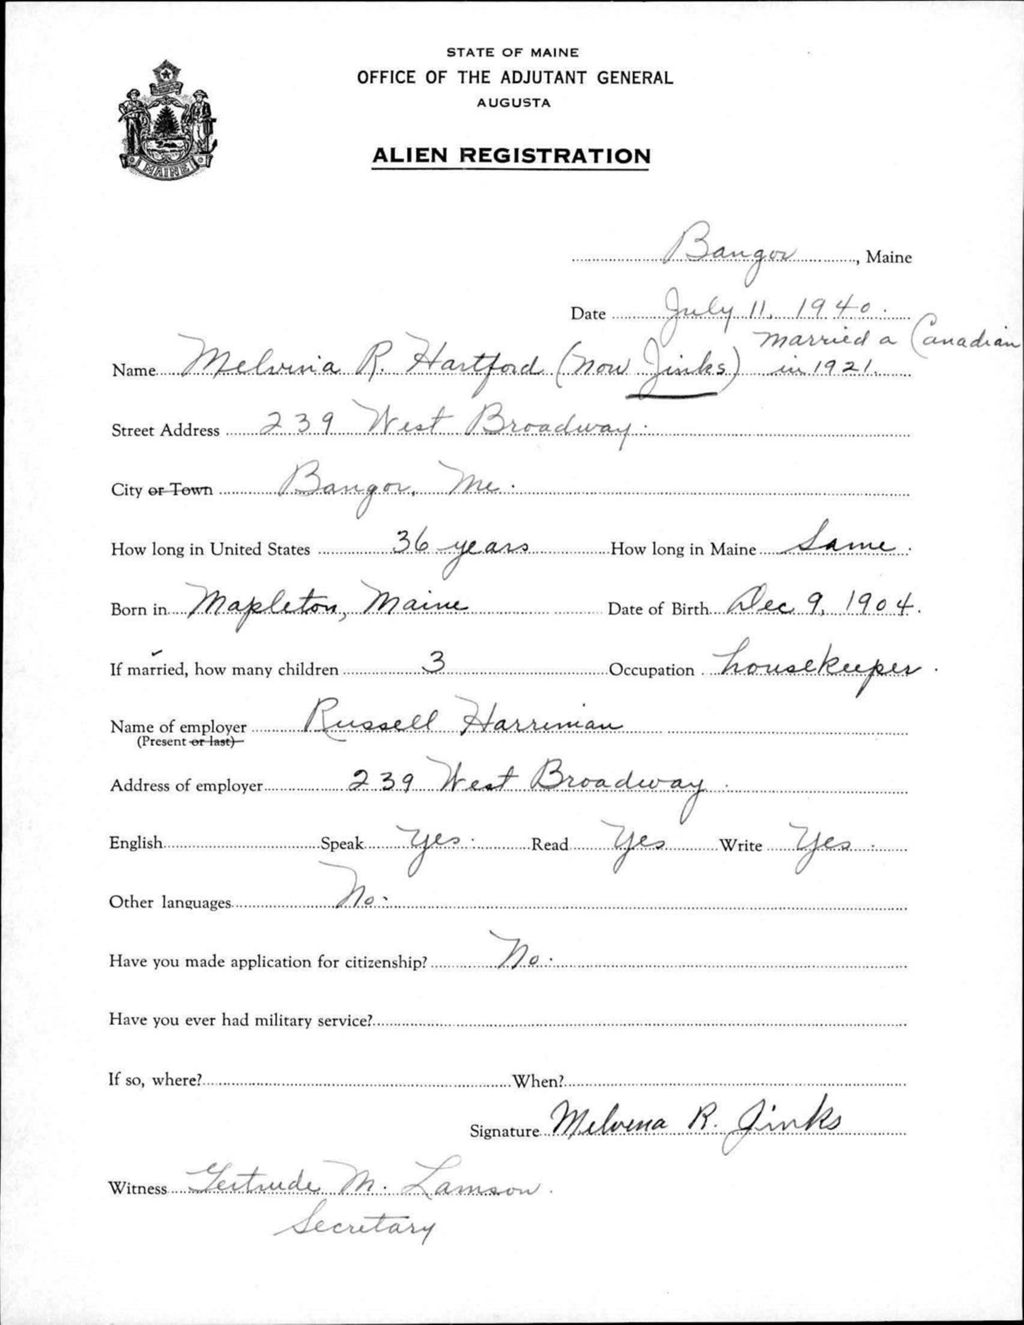 STATE OF MAINE
OFFICE OF THE ADJUTANT GENERAL
AUGUSTA
ALIEN REGISTRATION
MAINE
Bangor, Maine
Date July 11, 1940.
Name Melvina R. Hartford (now Jinks) married a Canadian in 1921.
Street Address 239 West Broadway.
City or Town Bangor, Me.
How long in United States 36 years How long in Maine Same.
Born in Mapleton, Maine Date of Birth Dec 9, 1904.
If married, how many children 3 Occupation housekeeper.
Name of employer Russell Harriman
(Present or last)
Address of employer 239 West Broadway.
English Speak Yes. Read Yes Write Yes.
Other languages No.
Have you made application for citizenship? No.
Have you ever had military service?
If so, where? When?
Signature Melvena R. Jinks
Witness Gertrude M. Lamson.
Secretary